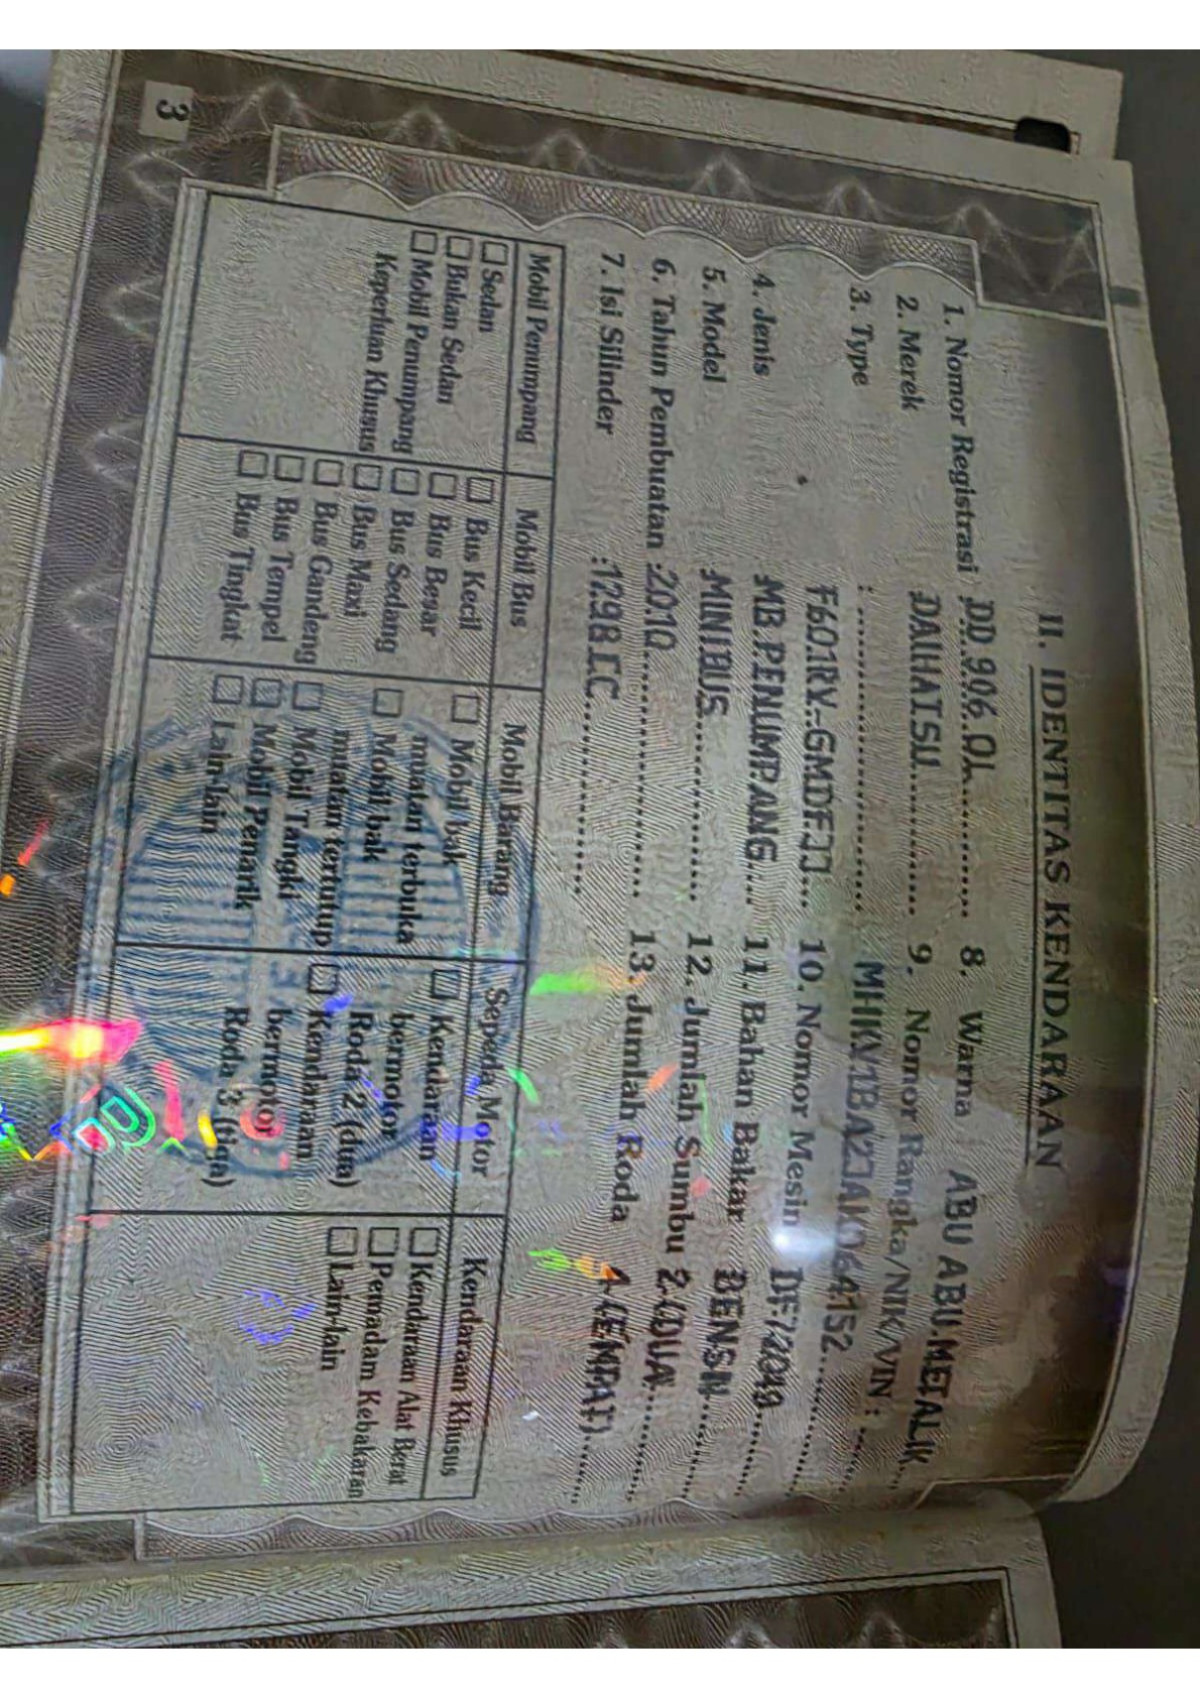 II. IDENTITAS KENDARAAN
1. Nomor Registrasi
2. Merek DAIHATSU
3. Type :
F601RV-GMDFJJ
4. Jenis MB.PENUMPANG
5. Model MINIBUS
6. Tahun Pembuatan :2010
7. Isi Silinder :1298 CC
8. Warna ABU ABU METALIK
9. Nomor Rangka/NIK/VIN :
10. Nomor Mesin
11. Bahan Bakar BENSIN
12. Jumlah Sumbu 2 (DUA)
13. Jumlah Roda 4 (EMPAT)
Mobil Penumpang
Sedan
Bukan Sedan
Mobil Penumpang
Keperluan Khusus
Mobil Bus
Bus Kecil
Bus Besar
Bus Sedang
Bus Maxi
Bus Gandeng
Bus Tempel
Bus Tingkat
Mobil Barang
Mobil bak
muatan terbuka
Mobil bak
muatan tertutup
Mobil Tangki
Mobil Penarik
Lain-lain
Sepeda Motor
Kendaraan
bermotor
Roda 2 (dua)
Kendaraan
bermotor
Roda 3 (tiga)
Kendaraan Khusus
Kendaraan Alat Berat
Pemadam Kebakaran
Lain-lain
3